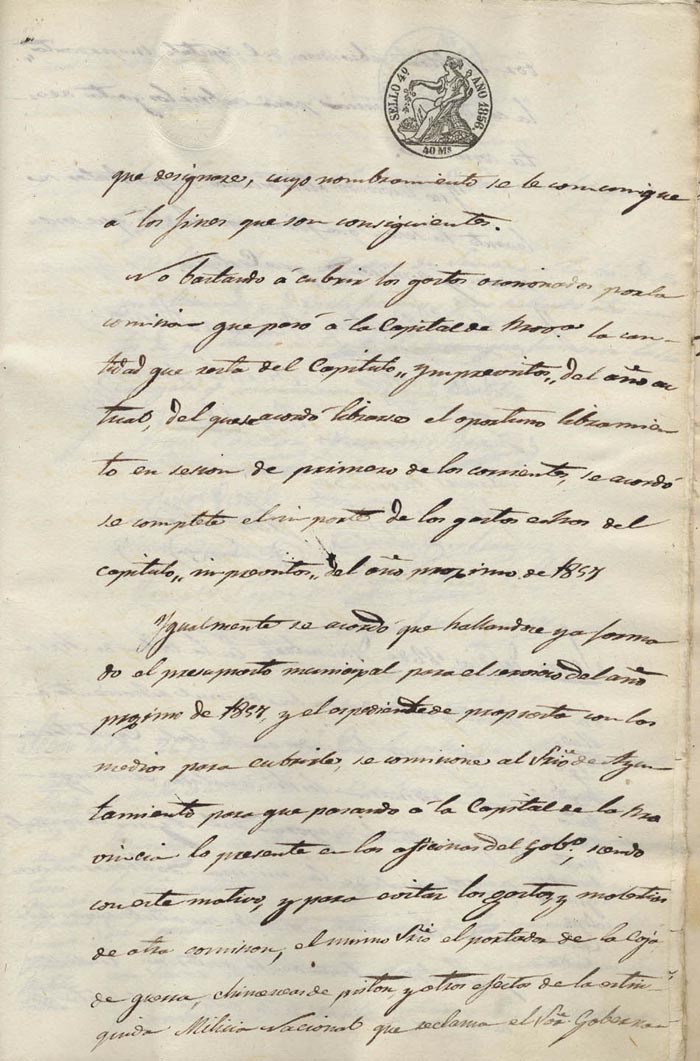 SELLO 4º AÑO 1856.
40 Ms
que designase, cuyo nombramiento se le comunique
á los fines que son consiguientes.
No bastando á cubrir los gastos ocasionados por la
comision que pasó á la Capital de Prova la can-
tidad que resta del Capitulo „ Ymprevistos „ del año ac
tual, del que se acordó librarse el oportuno libramien
to en sesion de primero de los corrientes, se acordó
se complete el importe de los gastos echos del
capitulo „ imprevistos „ del año proximo de 1857
Ygualmente se acordó que hallandose ya forma
do el presupuesto municipal para el servicio del año
proximo de 1857, y el espediente de propuesta con los
medios para cubrirle, se comisione al Srio de Ayun
tamiento para que pasando á la Capital de la Pro
vincia lo presente en las oficinas del Gobno, siendo
con este motivo, y para evitar los gastos y molestias
de otra comision, el mismo Srio el portador de la Caja
de guerra, chimeneas de piston, y otros efectos de la estin-
guida Milicia Nacional que reclama el Sor Goberna-